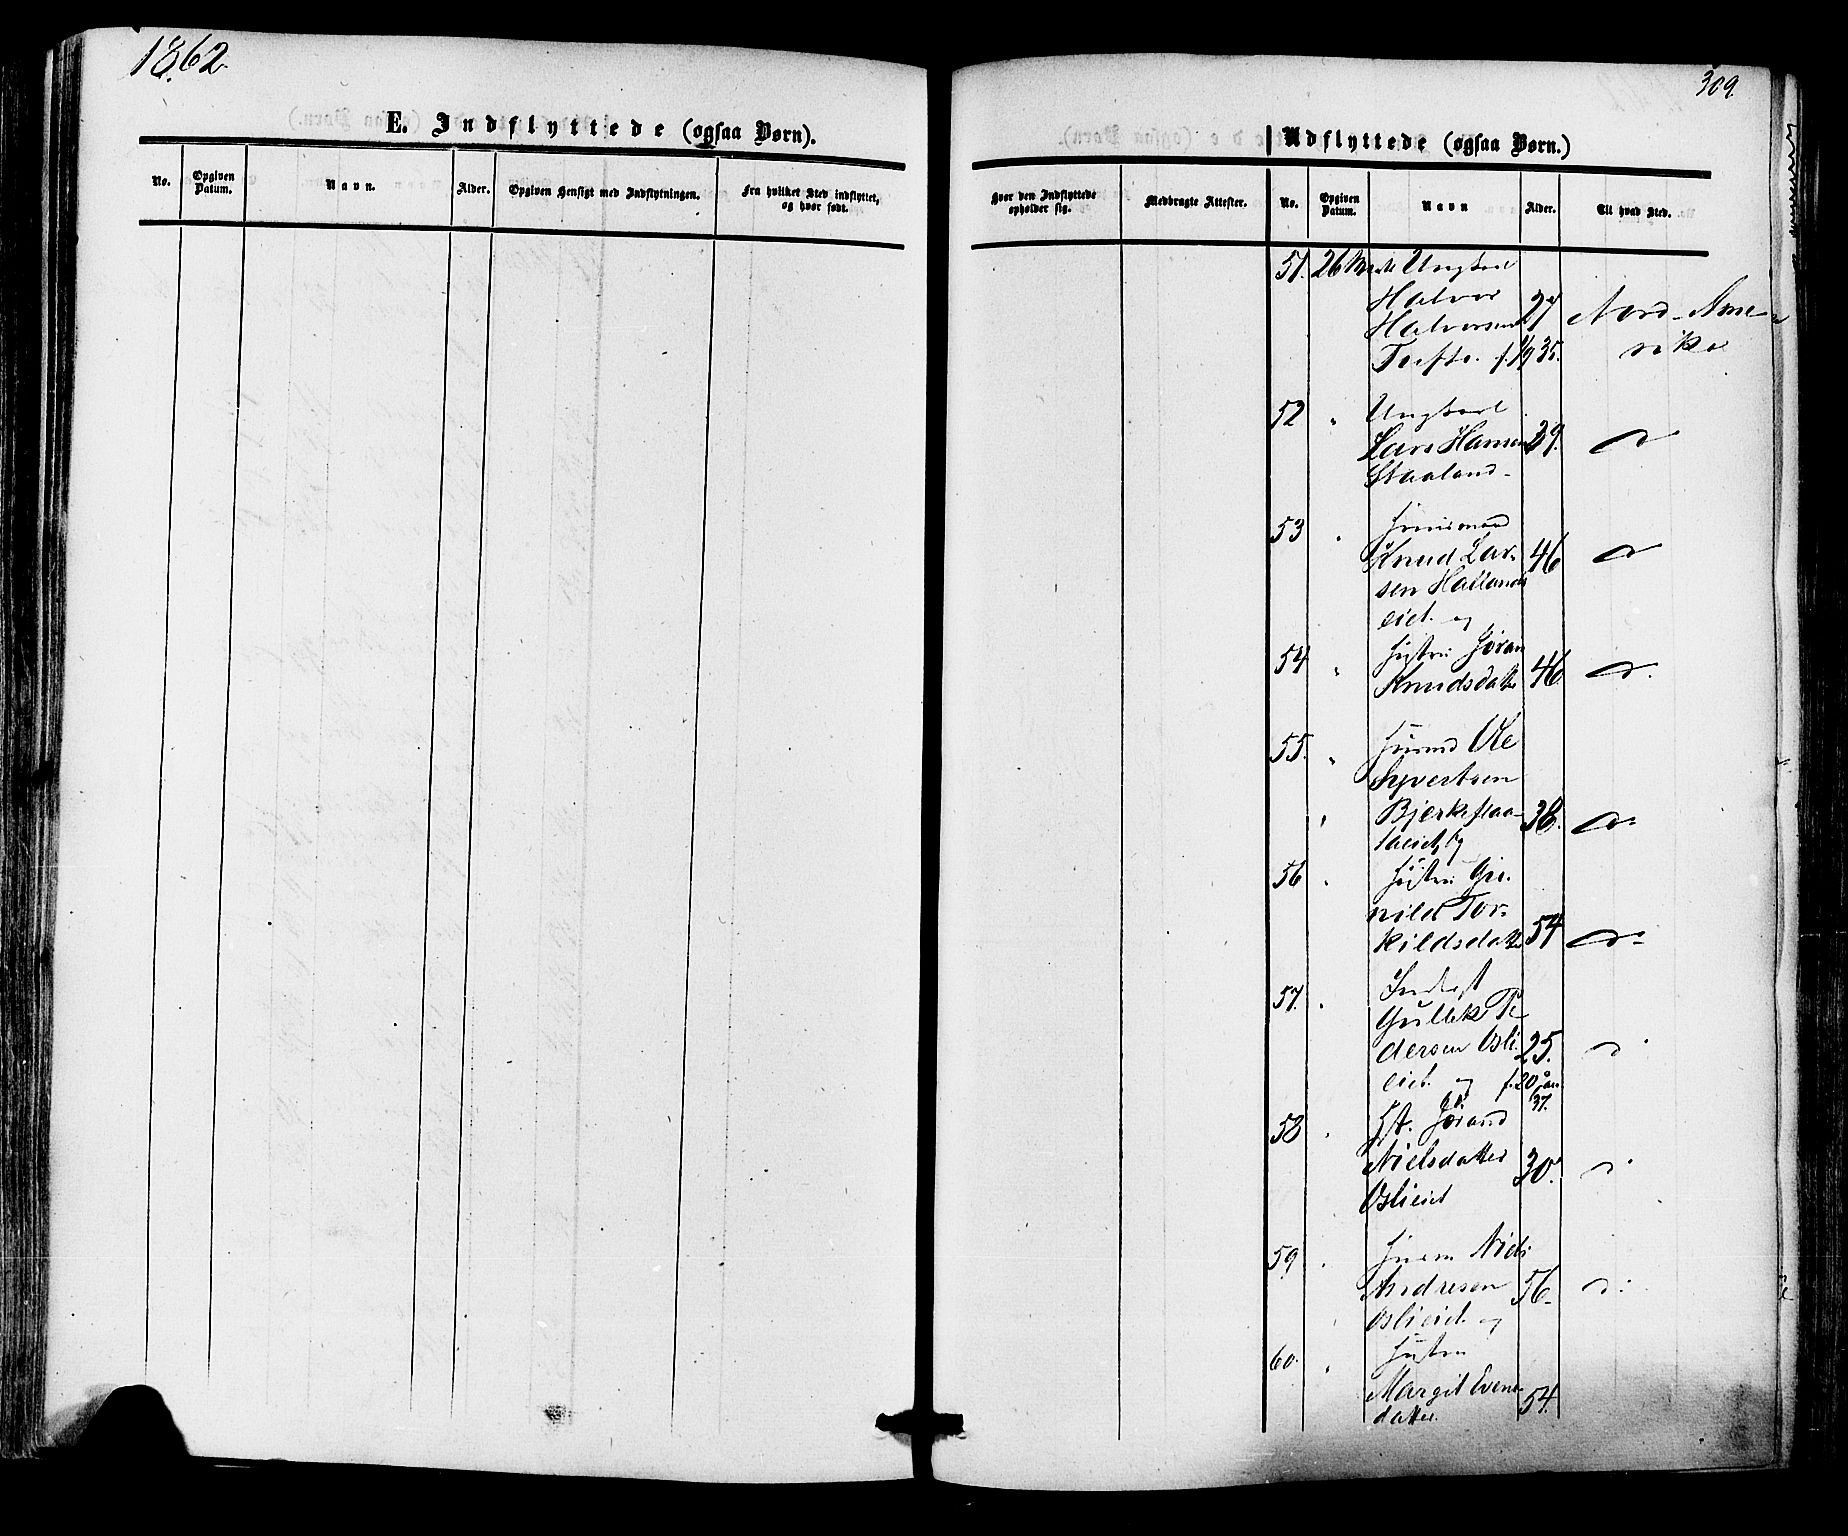 1862
309.
E. Indflyttede (ogsaa Børn).
No.
Opgiven Datum.
Navn.
Alder.
Opgiven Hensigt med Indflytningen.
Fra hvilket Sted indflyttet, og hvor født.
Udflyttede (ogsaa Børn.)
Hvor den Indflyttede opholder sig.
Medbragte Attester.
No.
Opgiven Datum.
Navn
Alder.
Til hvad Sted.
51. 26 Ungkarl
Halvor
Halvorsen 27 Nord-Ame-
Tufto. f. 35. rika
52 " Ungkarl
Lars Hansen 39. do
Staaland
53 " Huusmand
Knud Lar- 46 do
sen Hallands
eiet. og
54 " Hustru Jøran
Knudsdatter 46 do.
55. " Huusmd Ole
Syvertsen
" Bjerkeflaa- 38. do
taeiet, og
56 " Hustru Gu-
nild Tor-
kildsdatter 54 do
57. " Inderst
Gullek Pe-
dersen Osli- 25. do
eiet. og f. 20
37.
58 " Hst. Jørand
Nielsdatter 30. do
Oslieiet
59 " Huusm Niels
Andresen 56. do
Oslieiet. og
60. " Hustru
Margit Evens-
datter. 54.